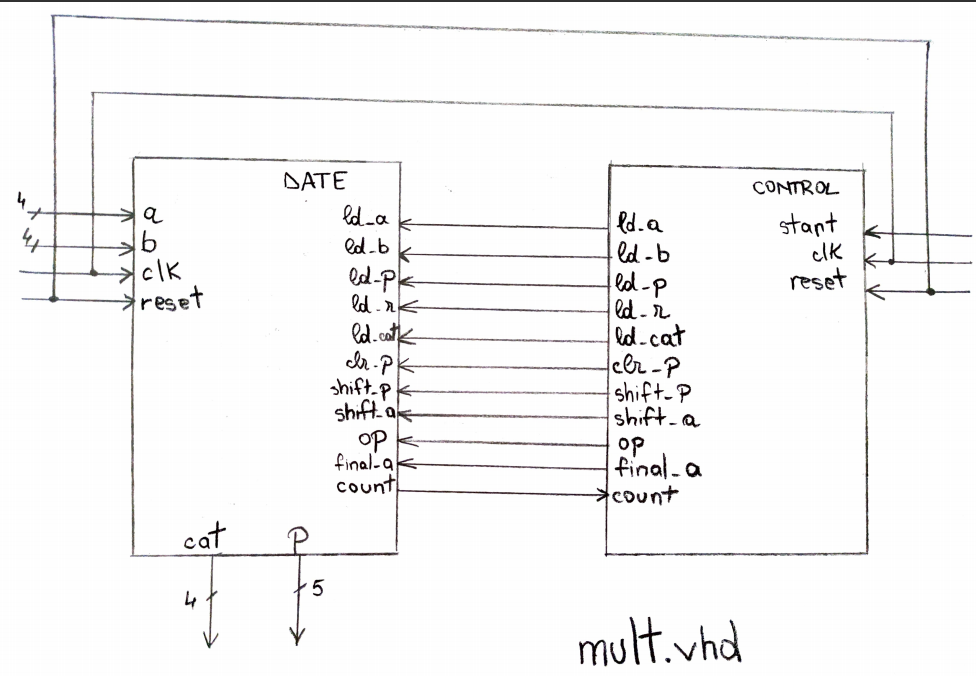 DATE
4
a
4
b
clk
reset
ld_a
ld_b
ld_p
ld_r
ld_cat
clr_p
shift_p
shift_a
op
final_a
count
cat
P
4
5
CONTROL
ld_a
ld_b
ld_p
ld_r
ld_cat
clr_p
shift_p
shift_a
op
final_a
count
start
clk
reset
mult.vhd